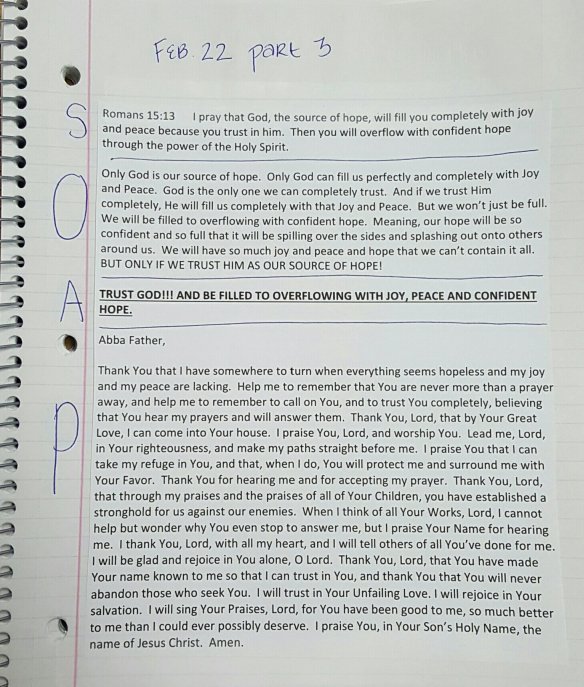 FEB. 22 part 3
S
Romans 15:13 I pray that God, the source of hope, will fill you completely with joy
and peace because you trust in him. Then you will overflow with confident hope
through the power of the Holy Spirit.
O
Only God is our source of hope. Only God can fill us perfectly and completely with Joy
and Peace. God is the only one we can completely trust. And if we trust Him
completely, He will fill us completely with that Joy and Peace. But we won't just be full.
We will be filled to overflowing with confident hope. Meaning, our hope will be so
confident and so full that it will be spilling over the sides and splashing out onto others
around us. We will have so much joy and peace and hope that we can't contain it all.
BUT ONLY IF WE TRUST HIM AS OUR SOURCE OF HOPE!
A
TRUST GOD!!! AND BE FILLED TO OVERFLOWING WITH JOY, PEACE AND CONFIDENT
HOPE.
P
Abba Father,
Thank You that I have somewhere to turn when everything seems hopeless and my joy
and my peace are lacking. Help me to remember that You are never more than a prayer
away, and help me to remember to call on You, and to trust You completely, believing
that You hear my prayers and will answer them. Thank You, Lord, that by Your Great
Love, I can come into Your house. I praise You, Lord, and worship You. Lead me, Lord,
in Your righteousness, and make my paths straight before me. I praise You that I can
take my refuge in You, and that, when I do, You will protect me and surround me with
Your Favor. Thank You for hearing me and for accepting my prayer. Thank You, Lord,
that through my praises and the praises of all of Your Children, you have established a
stronghold for us against our enemies. When I think of all Your Works, Lord, I cannot
help but wonder why You even stop to answer me, but I praise Your Name for hearing
me. I thank You, Lord, with all my heart, and I will tell others of all You've done for me.
I will be glad and rejoice in You alone, O Lord. Thank You, Lord, that You have made
Your name known to me so that I can trust in You, and thank You that You will never
abandon those who seek You. I will trust in Your Unfailing Love. I will rejoice in Your
salvation. I will sing Your Praises, Lord, for You have been good to me, so much better
to me than I could ever possibly deserve. I praise You, in Your Son's Holy Name, the
name of Jesus Christ. Amen.